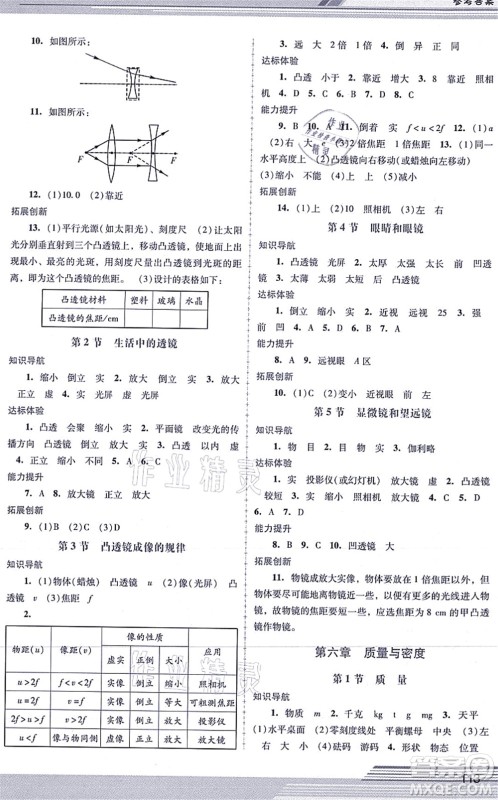 参考答案
10. 如图所示：
11. 如图所示：
F F F
12. (1)10.0 (2)靠近
拓展创新
13. (1)平行光源(如太阳光)、刻度尺 (2)让太阳
光分别垂直射到三个凸透镜上，移动凸透镜，使地面上出
现最小、最亮的光斑，用刻度尺量出凸透镜到光斑的距
离，即为这个凸透镜的焦距。 (3)设计的表格如下：
凸透镜材料 塑料 玻璃 水晶
凸透镜的焦距/cm
第 2 节 生活中的透镜
知识导航
1. 缩小 倒立 实 2. 倒立 放大 实 3. 放大
正立 虚 4. 实 光屏 虚 光屏
达标体验
1. 凸透 会聚 缩小 实 2. 平面镜 改变光的传
播方向 凸透镜 倒立 放大 实 3. 凸透 以内 虚
4. 正立 缩小 不同 5. A 6. C
能力提升
7. A 8. 放大镜 正立 放大
拓展创新
9. (1)B (2)A (3)D (4)C
第 3 节 凸透镜成像的规律
知识导航
1. (1)物体(蜡烛) 凸透镜 u (2)像(光屏) 凸
透镜 v (3)主焦距 f
2.
物距(u) 像距(v) 像的性质 应用
虚实 正倒 大小
u>2f f<v<2f 实像 倒立 缩小 照相机
u=2f v=2f 实像 倒立 等大 可粗测焦距
2f>u>f v>2f 实像 倒立 放大 投影仪
u<f 像与物同侧 虚像 正立 放大 放大镜
3. 远 大 2倍 1倍 4. 倒 异 正 同
达标体验
1. 凸透 小于 2. 靠近 增大 3. 8 靠近 照相
机 4. D 5. C 6. B 7. D 8. C
能力提升
9. B 10. A 11. 倒着 实 f<u<2f 12. (1)a
(2)右 大 e (3)2倍焦距 1倍焦距 13. (1)同一
水平高度上 (2)凸透镜向右移动(或蜡烛向左移动)
(3)缩小 不能 (4)上 上 (5)减小
拓展创新
14. (1)上 (2)10 照相机 (3)左 右
第 4 节 眼睛和眼镜
知识导航
1. 凸透镜 光屏 2. 太厚 太强 太长 前 凹透
镜 3. 太薄 太弱 太短 后 凸透镜
达标体验
1. 倒立 缩小 实 2. 近视 远视 25 3. 强
前 凹 4. B 5. C 6. A 7. B
能力提升
8. A 9. 远视眼 A区
拓展创新
10. (1)DC (2)变小 近视眼 前 凹
第 5 节 显微镜和望远镜
知识导航
1. 物 目 2. 目 物 实 3. 伽利略
达标体验
1. 实 投影仪(或幻灯机) 放大镜 2. 放大镜
较短 3. 实 缩小 照相机 放大 4. D 5. D
6. A 7. D
能力提升
8. C 9. A 10. 凹透镜 大
拓展创新
11. 物镜成放大实像，物距要在 1 倍焦距和 2 倍焦
距之间，由于凸透镜焦距越小，成像时物距就越小，因此
物镜要尽可能地离实物近一些，以便有更多的光线进入物
镜，故物镜的焦距要小一些，应选焦距为 8 cm 的甲凸透
镜作物镜。
第六章 质量与密度
第 1 节 质 量
知识导航
1. 物质 m 2. 千克 kg t g mg 3. 天平
(1)水平 零点(或零刻度线) 平衡螺母 中央 (3)
左 右 大 小 (4)砝码 游码 4. 形状 物态 位置
作业精灵
113
答案圈
MXQE.COM